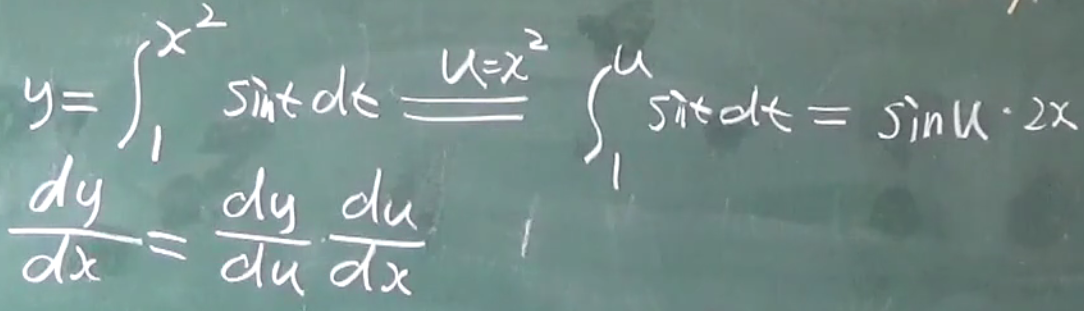 y = ∫₁^{x²} sint dt \overset{u=x²}{=} ∫₁^{u} sint dt = sin u · 2x
dy/dx = dy/du · du/dx